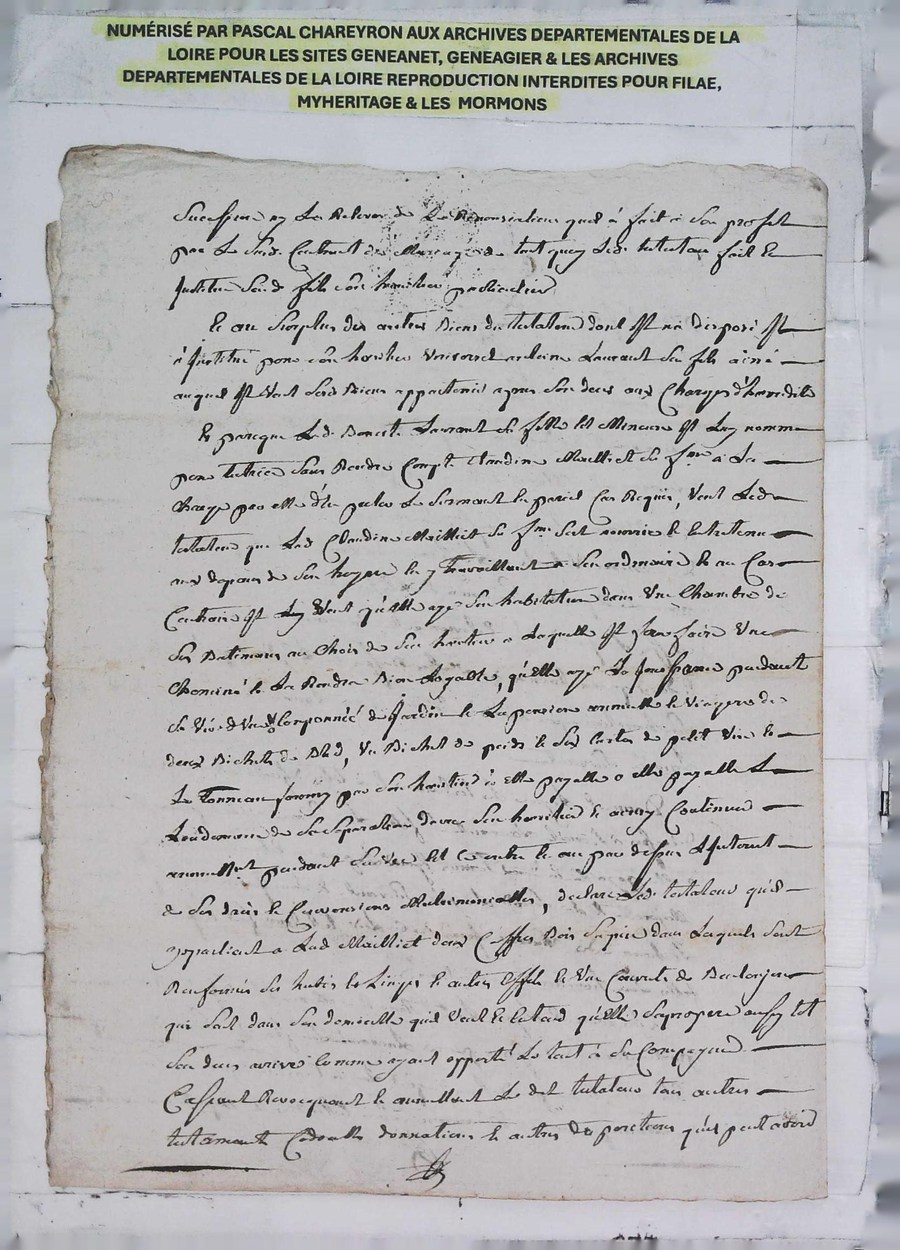 NUMÉRISÉ PAR PASCAL CHAREYRON AUX ARCHIVES DEPARTEMENTALES DE LA
LOIRE POUR LES SITES GENEANET, GENEAGIER & LES ARCHIVES
DEPARTEMENTALES DE LA LOIRE REPRODUCTION INTERDITES POUR FILAE,
MYHERITAGE & LES MORMONS
de La Renonciation quel à fait à Son profit
par Le Susd. Contract de Mariage de tout quoy Led. testateur fait et
Institue Sond. fils Son heritier particulier
Et au Surplus des autres Biens du testateur dont Il n'a disposé Il
à Institué pour Son heritier Universel antoine Laurant Son fils ainé
auquel Il Veut Sesd. Biens appartenir apres Son deces aux Charges d'heredité
Et parceque Lad. Benoite Laurant Sa fille Est Mineure Il Luy nomme
pour tutrice Sans Rendre Compte Claudine Mailliet Sa fme à La
Charge par elle d'En preter Le Serment En pareil Cas Requis, Veut Led.
testateur que Lad. Claudine Mailliet Sa fme Soit nourrie Et Entretenue
aux depans de Son hoyrie En y Travaillant a Son ordinaire Et au Cas
Contraire Il Luy Veut qu'elle aye Son habitation dans Une Chambre de
Ses Batimens au Choix de Son heritier a Laquelle Il fera faire Une
Cheminé Et La Rendre Bien Logeable, qu'elle aye La Jouissance pendant
Sa Vie d'Une Couponnée de Jardin Et La pension annuelle Et Viagere de
deux Bichets de Bled, Un Bichet de pois Et Six Cartes de petit Vin Et
Le Tonneau fourny par Son heritier à elle payable a elle payable Le
Lendemain de Sa Separation d'avec Son heritier Et ainsy Continuer
annuellemt pendant Sa Vie Et Ce outre Et au par dessus
de Ses droits Et Conventions Matrimonielles, declare Led. testateur qu'il
appartient a Lad. Mailliet deux Coffres Bois Sapin dans Lesquels Sont
Renfermés Ses habits Et Linges Et autres Effets Et Une Couverte de
qui Sont dans Son domicille quil Veut Et Entend qu'elle Sapropre aussytot
Son deces arrivé Comme ayant apporté Le tout à Sa Compagnie.
Cassant Revocquant Et annullant Led. testateur tous autres
testaments Codicilles donnations Et autres dispositions qu'il peut avoir